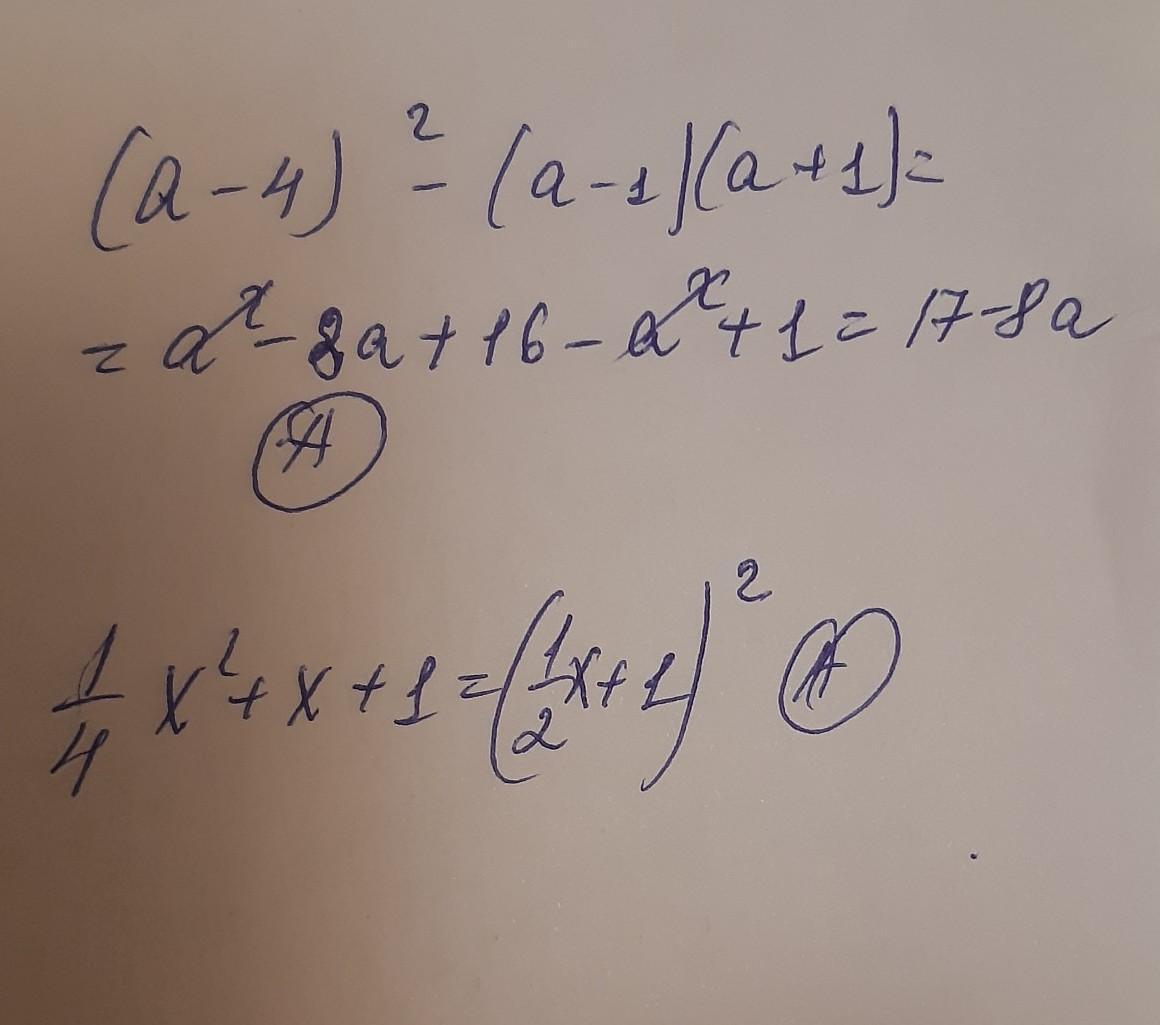 (a-4)² - (a-1)(a+1)=
= a²-8a+16-a²+1= 17-8a
A
1/4 x²+x+1=(1/2x+1)² A